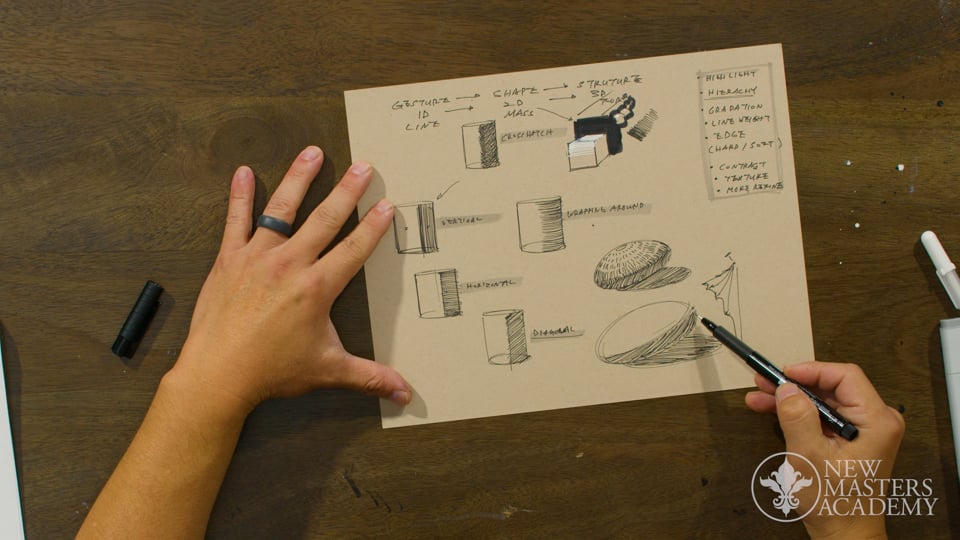 GESTURE → SHAPE → STRUTURE
1D → 2D → 3D
LINE MASS
CROSSHATCH
VERTICAL
WRAPPING AROUND
HORIZONTAL
DIAGONAL
• HIGHLIGHT
• HIERACHY
• GRADATION
• LINE WEIGHT
• EDGE
(HARD / SOFT)
• CONTRAST
• TEXTURE
NEW
MASTERS
ACADEMY